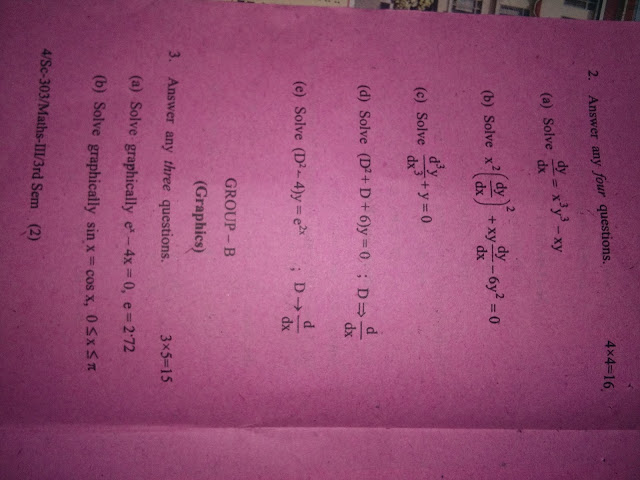 2. Answer any four questions. 4×4=16
(a) Solve dy/dx = x³y³ − xy
(b) Solve x²(dy/dx)² + xy dy/dx − 6y² = 0
(c) Solve d³y/dx³ + y = 0
(d) Solve (D² + D + 6)y = 0 ; D ⇒ d/dx
(e) Solve (D² − 4)y = e²ˣ ; D → d/dx
GROUP – B
(Graphics)
3. Answer any three questions. 3×5=15
(a) Solve graphically eˣ − 4x = 0, e = 2·72
(b) Solve graphically sin x = cos x, 0 ≤ x ≤ π
4/Sc-303/Maths-III/3rd Sem (2)